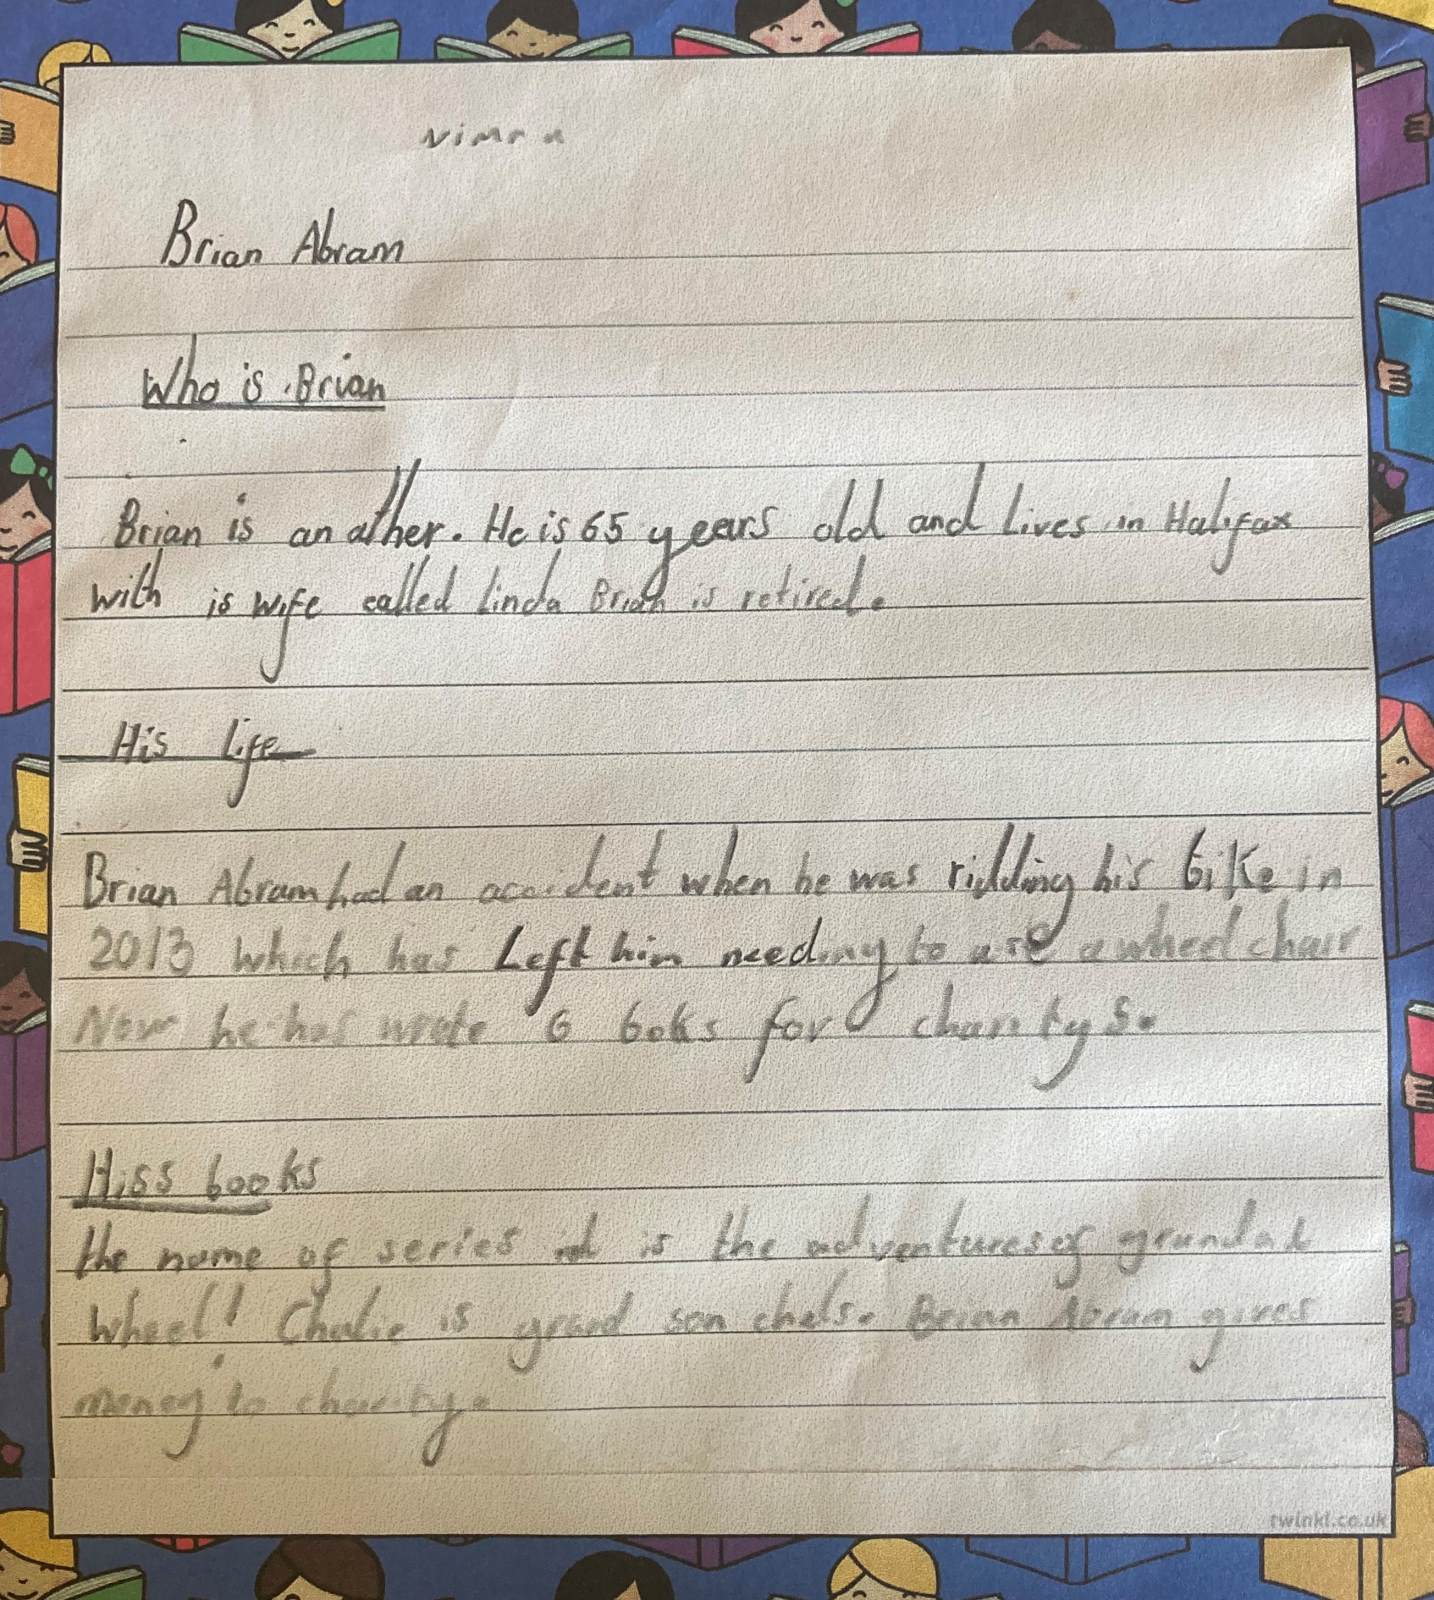 Nimra
Brian Abram
Who is Brian
Brian is an ather. He is 65 years old and lives in Halifax
with is wife called linda Brian is retired.
His life
Brian Abram had an accident when he was ridding his bike in
2013 which has Left him needing to use a wheel chair
Now he has wrote 6 boks for charitys.
Hiss books
the name of series is the adventures of grandad
wheel! Chalie is grand son chals. Brian Abram gives
money to charity.
twinkl.co.uk